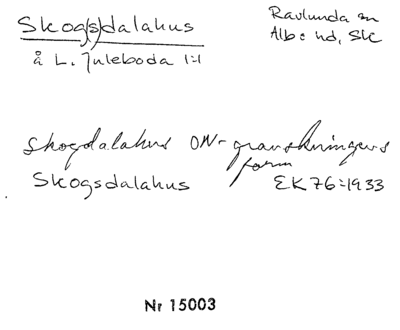 Skog(s)dalahus
Ravlunda sn
Alb:s hd, Sk
å L. Juleboda 1:1
Skogdalahus ON-granskningens
form
Skogsdalahus EK 76:1933
Nr 15003